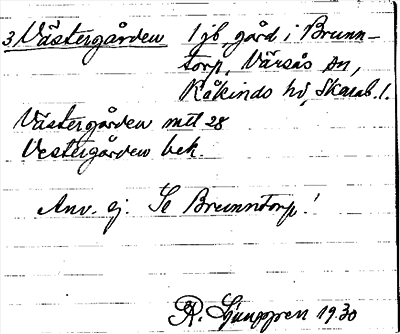 3. Västergården 1 jb. gård i Brunn-
torp, Värsås sn,
Kåkinds hd, Skarab. l.
Västergården mtl 28
Vestergården bek.
Anv. ej. Se Brunntorp!
R. Ljunggren 1930